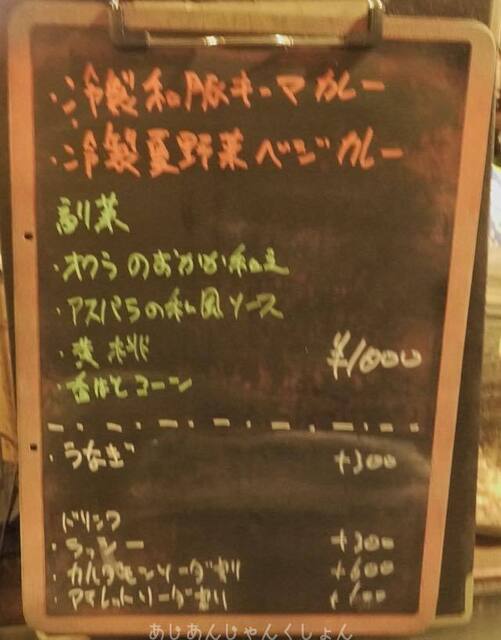 ・冷製和豚キーマカレー
・冷製夏野菜ベジカレー
副菜
・オクラのおかか和え
・アスパラの和風ソース
・黄桃
・香ばしコーン
¥1000
・うなぎ +300
ドリンク
・ラッシー +300
・カルダモンソーダ割り +600
・アマレットソーダ割り +600
あじあんじゃんくしょん